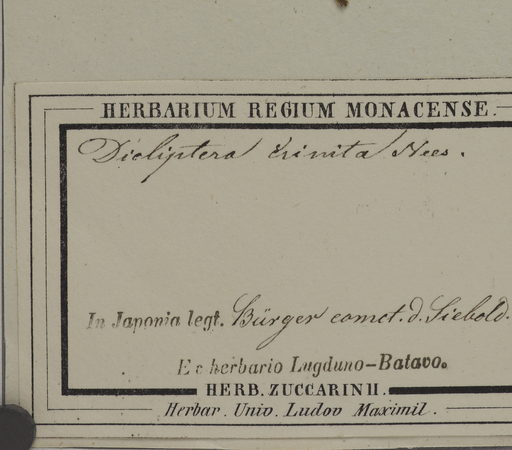 HERBARIUM REGIUM MONACENSE.
Dicliptera crinita Nees.
In Japonia legt. Bürger comct. d. Siebold.
Ex herbario Lugduno-Batavo.
HERB. ZUCCARINII.
Herbar. Univ. Ludov Maximil.